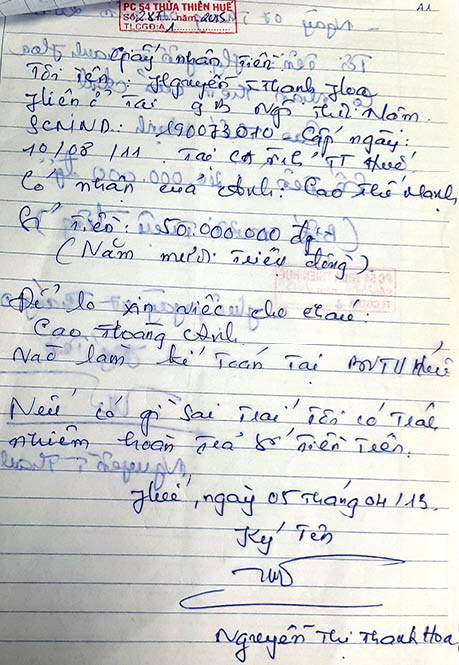 A1
PC 54 THỪA THIÊN HUẾ
Số 287 năm 2015
TLCGĐ: A1
Giấy nhận tiền
Tôi tên: Nguyễn T Thanh Hoa
Hiện ở Tại 9B Ngô Thời Nhậm.
SCMND: 190073070 Cấp ngày:
10/08/11. Tại CA Tỉnh TT Huế
Có nhận của Anh: Cao Thế Mạnh
Số tiền: 50.000.000 đ
(Năm mươi triệu đồng)
Để lo xin việc cho cháu:
Cao Hoàng Anh
Vào làm kế toán Tại BVTW Huế
Nếu có gì sai Trái Tôi có Trách
nhiệm hoàn trả số tiền trên.
Huế, ngày 05 tháng 04/13.
Ký Tên
Nguyễn Thị Thanh Hoa